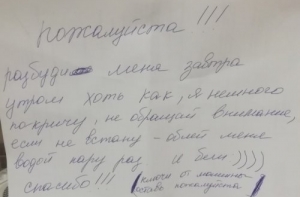 пожалуйста !!!
разбуди меня завтра
утром хоть как, я немного
покричу, не обращай внимание,
если не встану - облей меня
водой пару раз и бей ))))
спасибо!!! (ключи от машины
пожалуйста